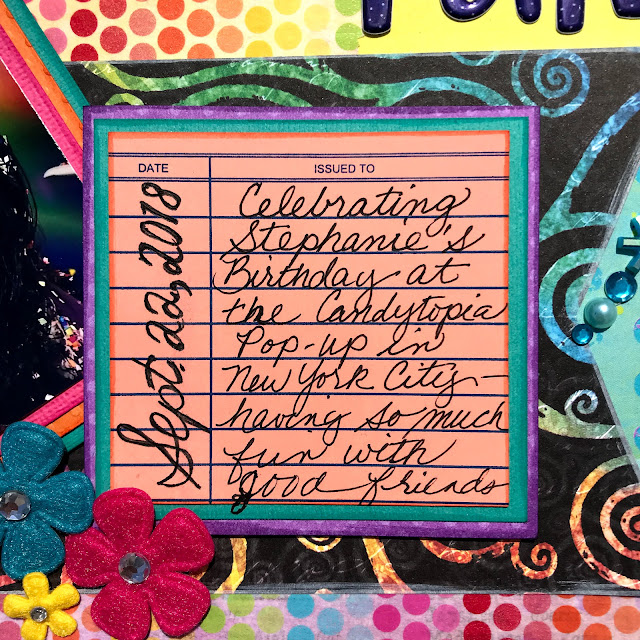 DATE
ISSUED TO
Sept. 22, 2018
Celebrating
Stephanie's
Birthday at
the Candytopia
Pop-up in
New York City-
having so much
fun with
good friends